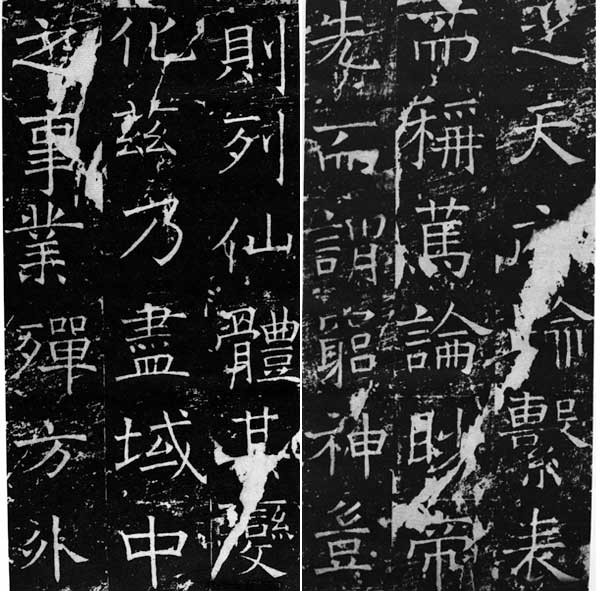 之天繫表
而稱篤論眇帝
先而謂窮神豈
則列仙體其變
化茲乃盡域中
之事業殫方外